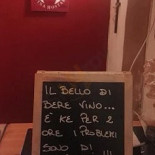 IL BELLO DI
BERE VINO...
E' KE PER 2
ORE I PROBLEMI
SONO DI